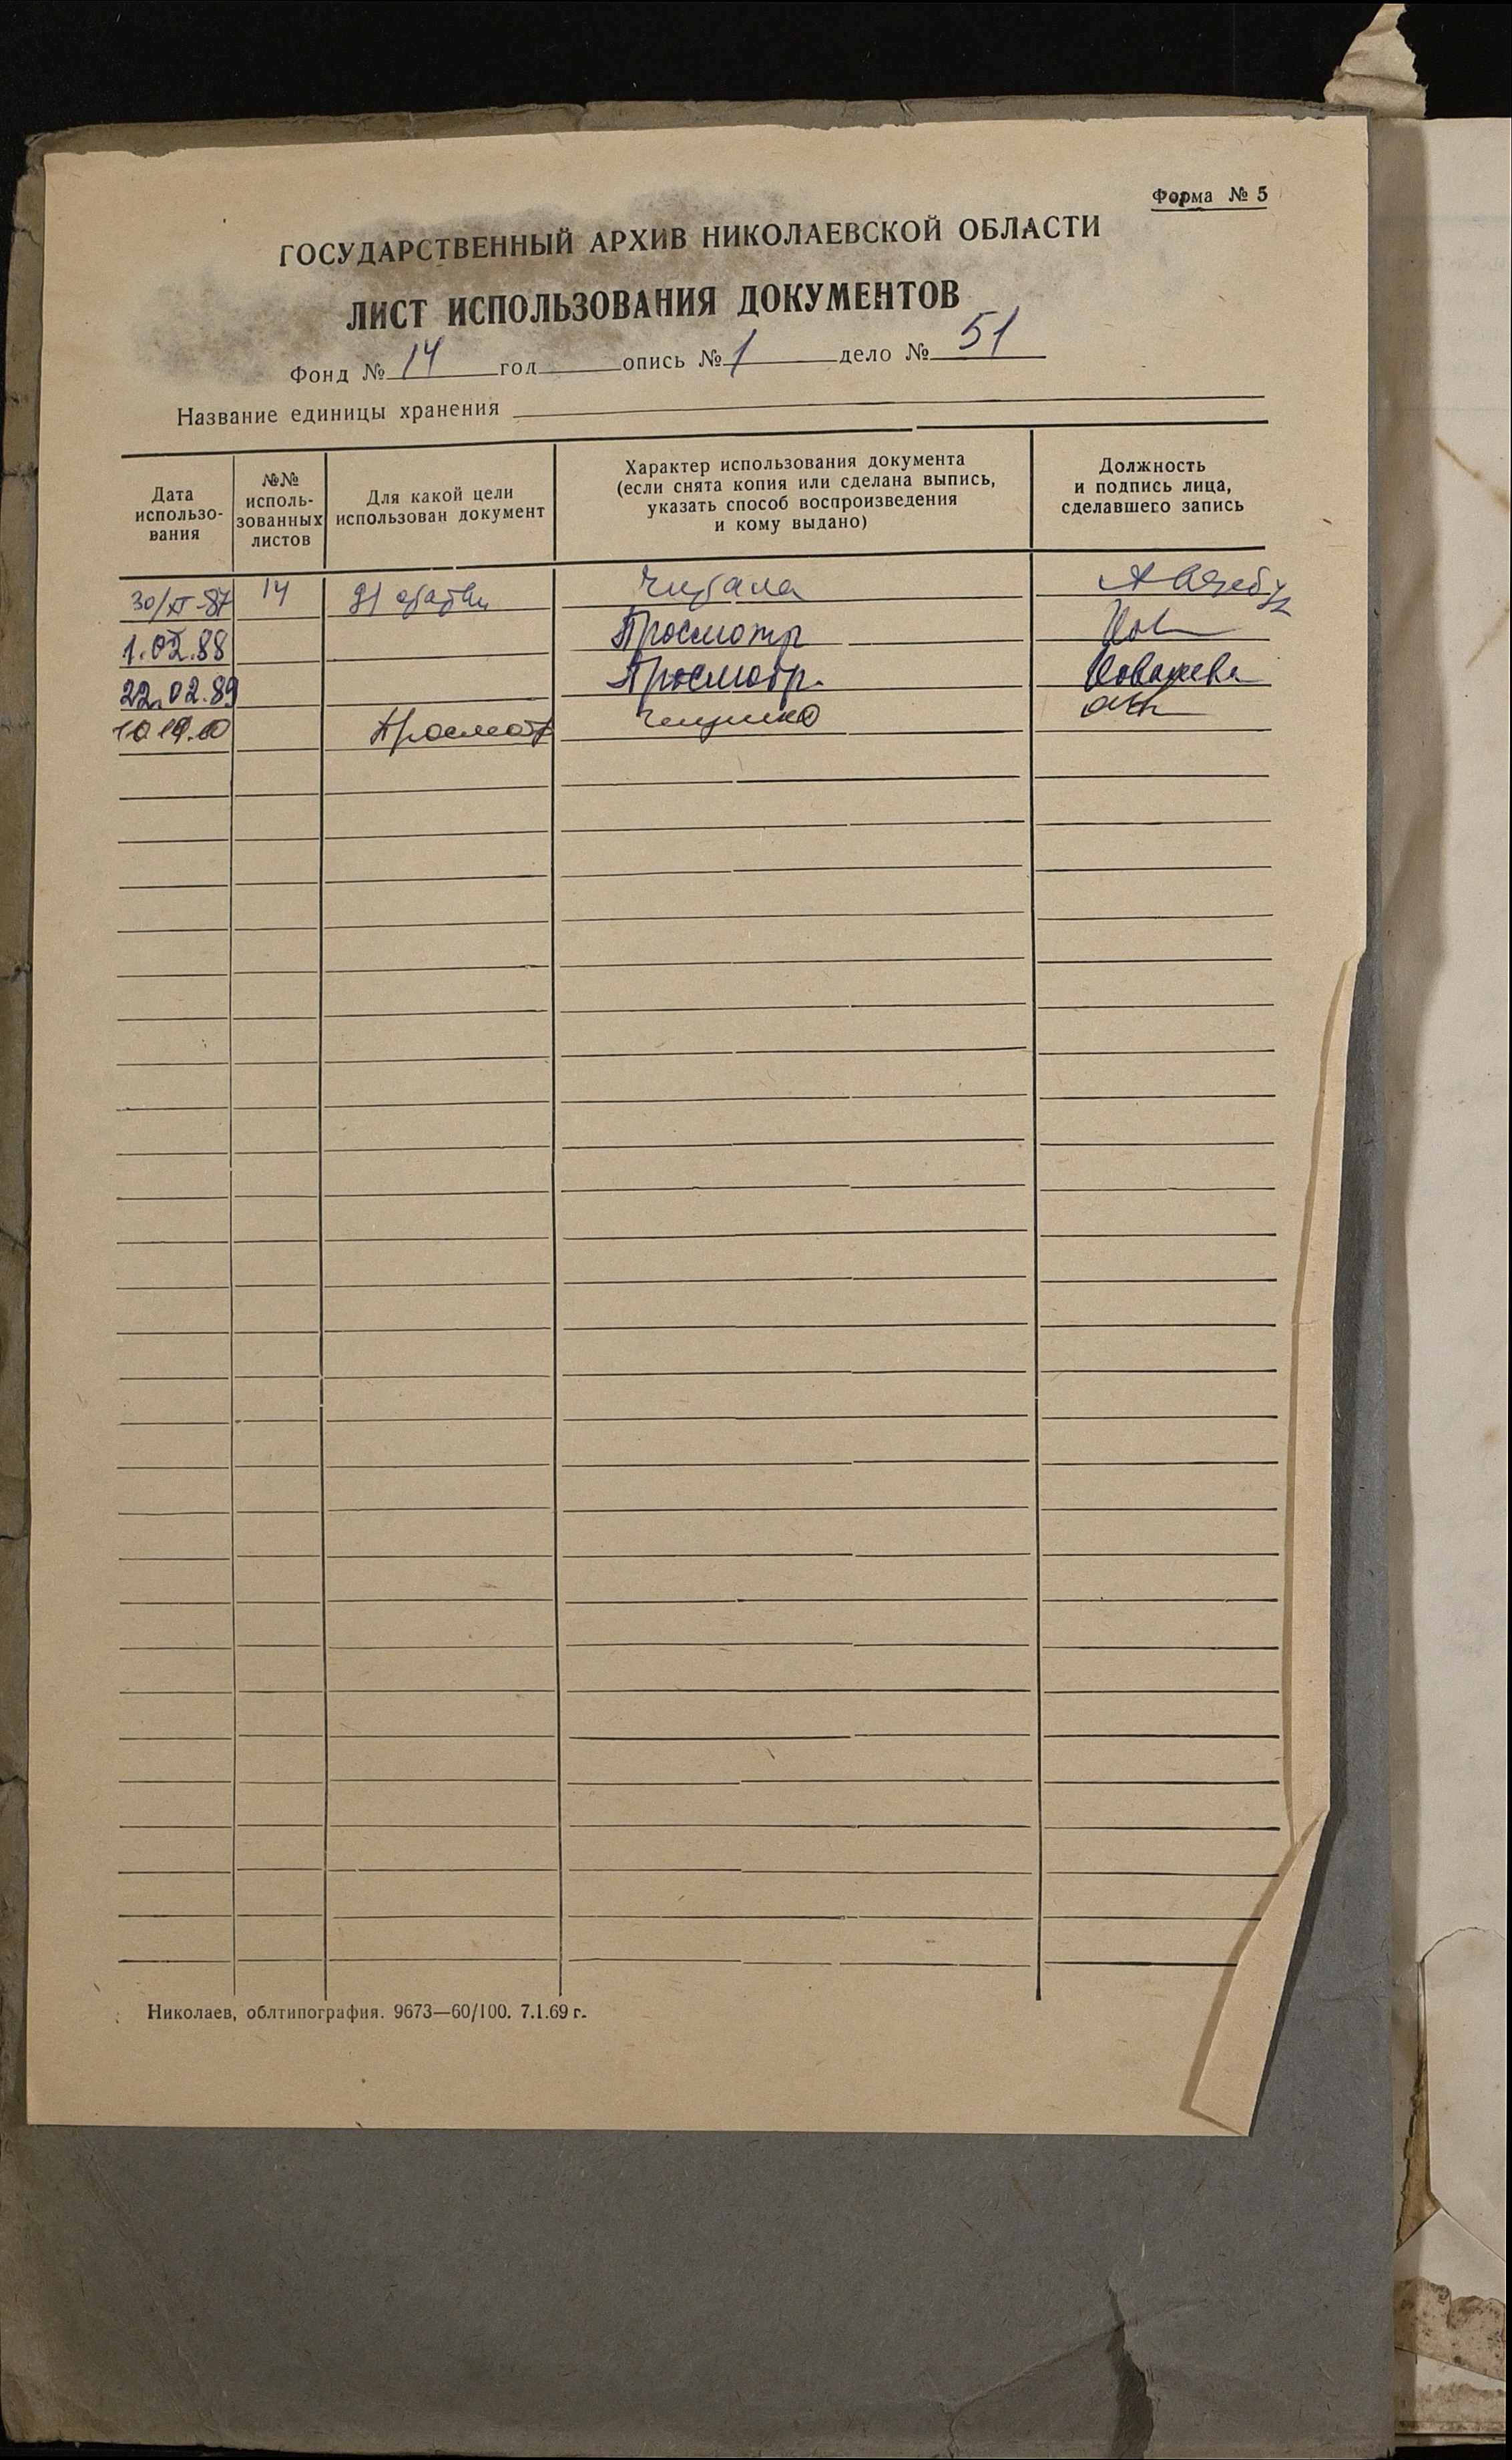 Форма № 5
ГОСУДАРСТВЕННЫЙ АРХИВ НИКОЛАЕВСКОЙ ОБЛАСТИ
ЛИСТ ИСПОЛЬЗОВАНИЯ ДОКУМЕНТОВ
Фонд № 14 год опись № 1 дело № 51
Название единицы хранения
Дата
использо-
вания
№№
исполь-
зованных
листов
Для какой цели
использован документ
Характер использования документа
(если снята копия или сделана выпись,
указать способ воспроизведения
и кому выдано)
Должность
и подпись лица,
сделавшего запись
30/XI-87 14 читала
1.02.88 Просмотр
22.02.89 Просмотр.
Просмотр
Николаев, облтипография. 9673—60/100. 7.1.69 г.